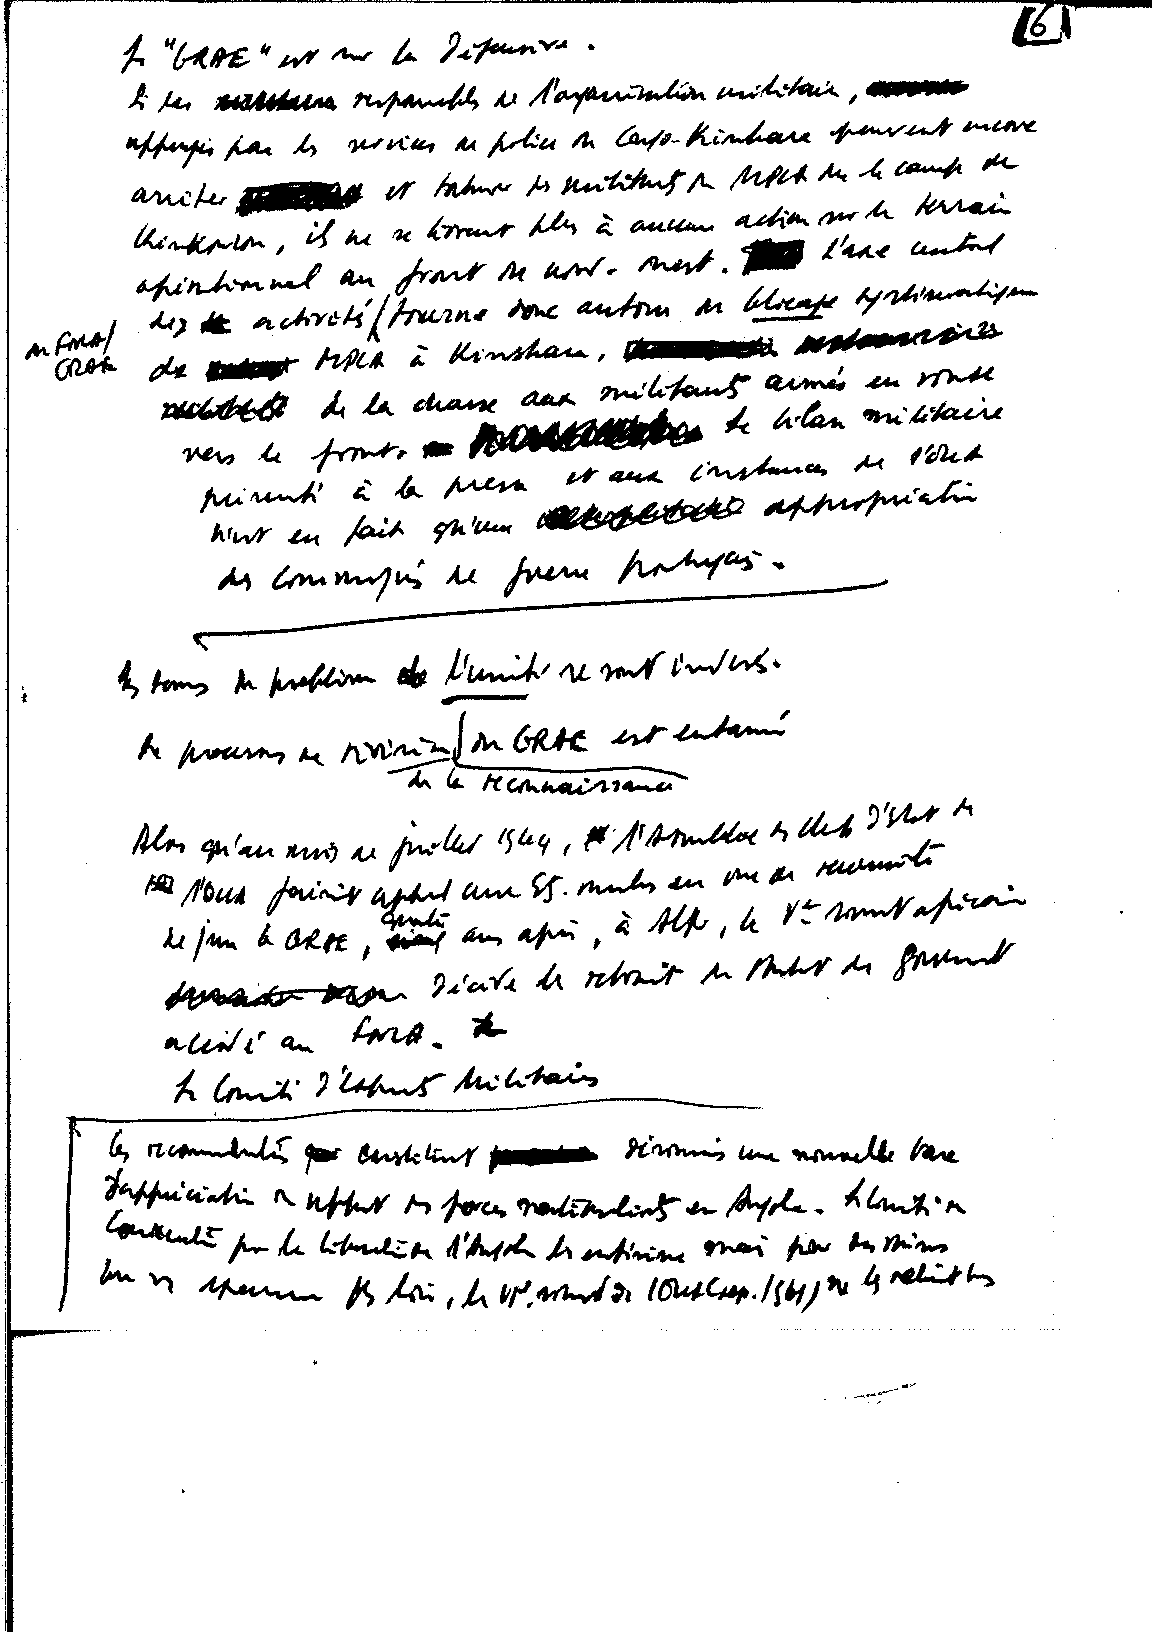 6
Le "GRAE" est sur la défensive.
Si les responsables de l'organisation militaire,
appuyés par les services de police du Congo-Kinshasa peuvent encore
arrêter et torturer des militants du MPLA dans le camp de
Kinkouzou, ils ne se livrent plus à aucune action sur le terrain
opérationnel au front du nord-ouest. L'axe central
des activités tourne donc autour du blocage systématique
du FNLA/
GRAE
du MPLA à Kinshasa,
de la chasse aux militants armés en route
vers le front. Le bilan militaire
présenté à la presse et aux instances de l'OUA
n'est en fait qu'une appropriation
des communiqués de guerre portugais.
Les termes du problème de l'unité se sont inversés.
Le processus de révision du GRAE est entamé
de la reconnaissance
Alors qu'au mois de juillet 1964, l'Assemblée des Chefs d'Etat de
l'OUA faisait appel aux Etats membres en vue de reconnaître
de jure le GRAE, quatre ans après, à Alger, le Ve sommet africain
décide le retrait du statut de gouvernement
accordé au FNLA.
Le Comité d'Experts Militaires
Ces recommandations constituent désormais une nouvelle base
d'appréciation du rapport des forces nationalistes en Angola. Le Comité de
Coordination pour la libération de l'Angola les entérine mais pour des raisons
plus loin, le VIe sommet de l'OUA (sep. 1969) ne les